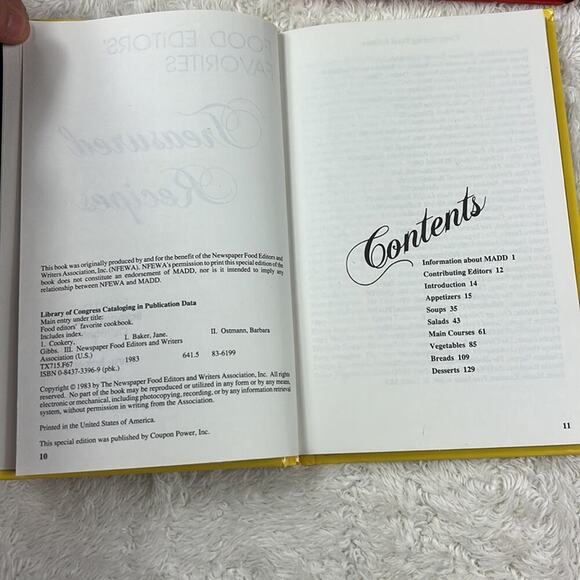 FOOD EDITORS'
FAVORITES
Treasured
Recipes
This book was originally produced by and for the benefit of the Newspaper Food Editors and
Writers Association, Inc. (NFEWA). NFEWA's permission to print this special edition of the
book does not constitute an endorsement of MADD, nor is it intended to imply any
relationship between NFEWA and MADD.
Library of Congress Cataloging in Publication Data
Main entry under title:
Food editors' favorite cookbook.
Includes index.
1. Cookery, I. Baker, Jane. II. Ostmann, Barbara
Gibbs. III. Newspaper Food Editors and Writers
Association (U.S.)
TX715.F67 1983 641.5 83-6199
ISBN 0-8437-3396-9 (pbk.)
Copyright © 1983 by The Newspaper Food Editors and Writers Association, Inc. All rights
reserved. No part of the book may be reproduced or utilized in any form or by any means,
electronic or mechanical, including photocopying, recording, or by any information retrieval
system, without permission in writing from the Association.
Printed in the United States of America.
This special edition was published by Coupon Power, Inc.
10
Contents
Information about MADD 1
Contributing Editors 12
Introduction 14
Appetizers 15
Soups 35
Salads 43
Main Courses 61
Vegetables 85
Breads 109
Desserts 129
11